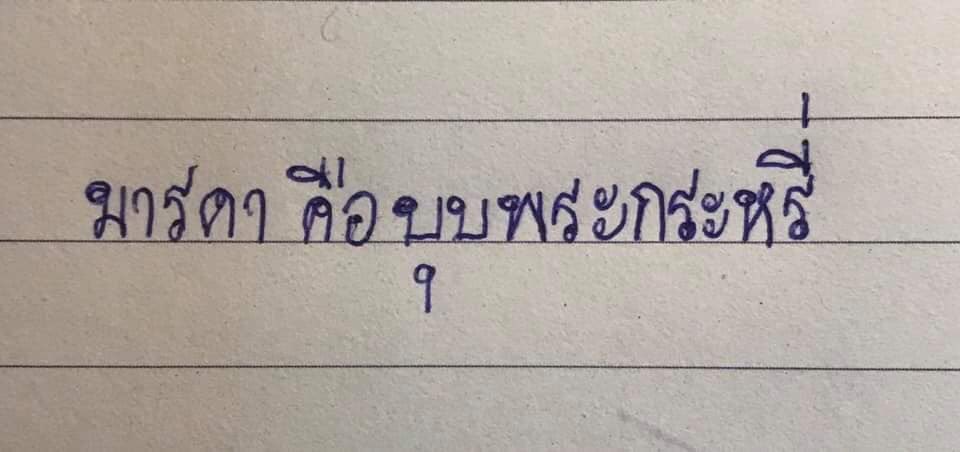 มารดา คือ บุบพระกระหรี่